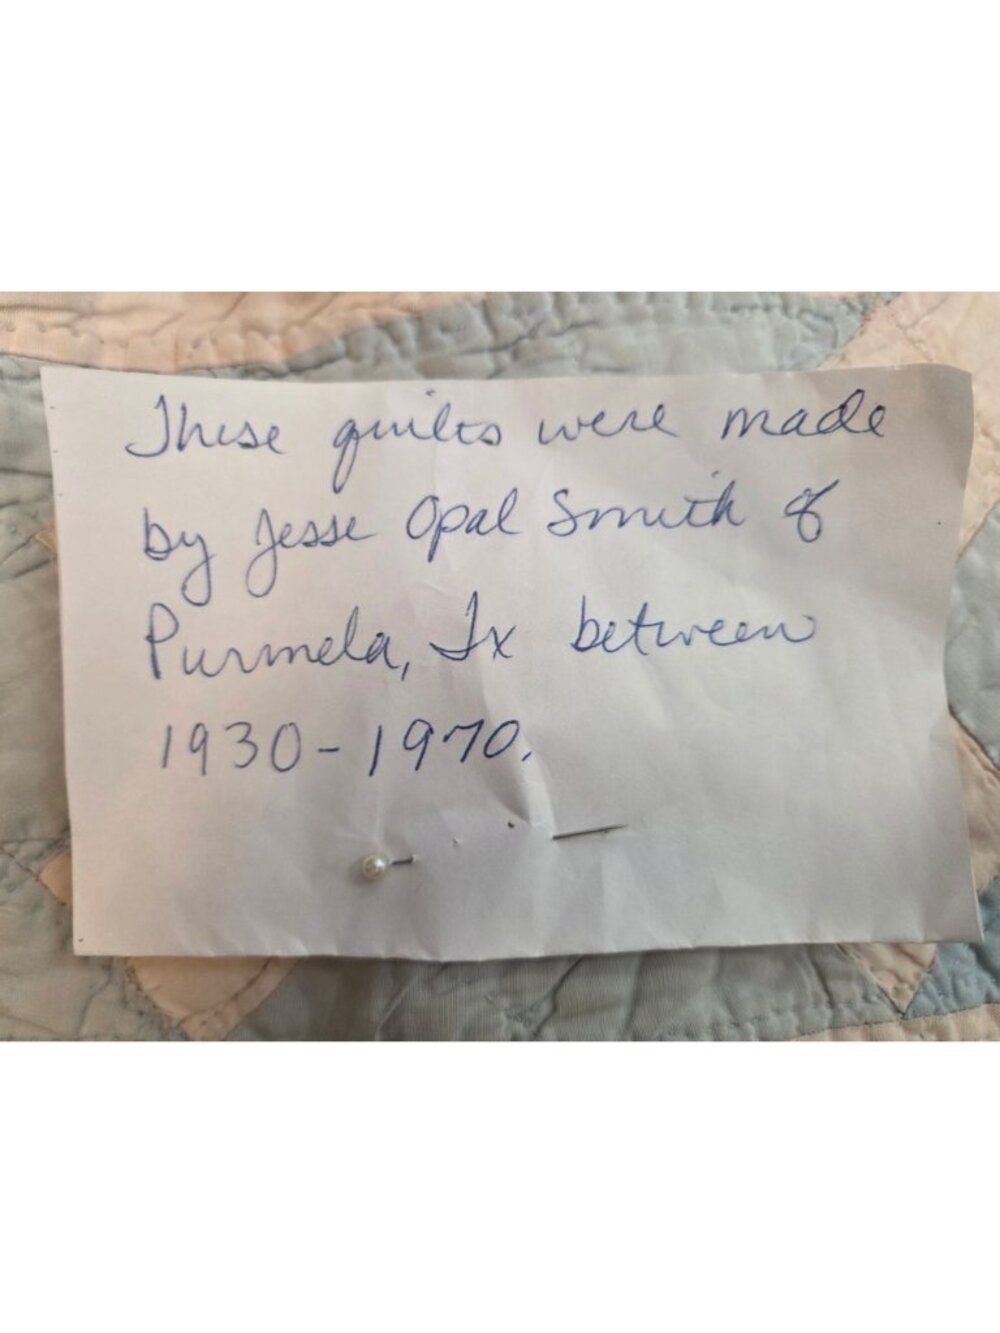 These quilts were made
by Jesse Opal Smith of
Purmela, Tx between
1930-1970.